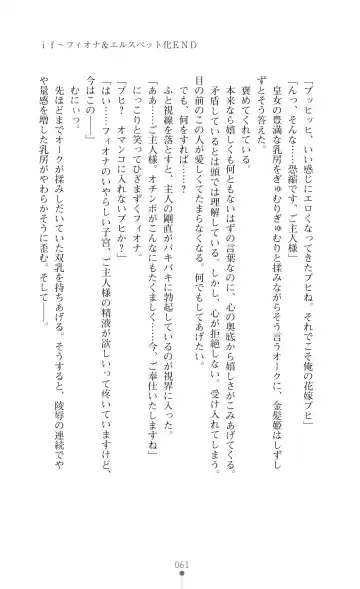 ｉｆ～フィオナ＆エルスペット化ＥＮＤ
「ブッヒッヒ、いい感じにエロくなってきたブヒね。それでこそ俺の花嫁ブヒ」
「んっ、そんな……恐縮です、ご主人様」
皇女の豊満な乳房をぎゅむりぎゅむりと揉みながらそう言うオークに、金髪姫はしずし
ずとそう答えた。
褒めてくれている。
本来なら嬉しくも何ともないはずの言葉なのに、心の奥底から嬉しさがこみあげてくる。
矛盾していると頭では理解している。しかし、心が拒絶しない。受け入れてしまう。
目の前のこの人が愛しくてたまらなくなる。何でもしてあげたい。
でも、何をすれば……？
ふと視線を落とすと、主人の剛直がバキバキに勃起しているのが視界に入った。
「ああ……ご主人様。オチンポがこんなにもたくましく……今、ご奉仕いたしますね」
にっこりと笑ってひざまずくフィオナ。
「ブヒ？　オマンコに入れないブヒか？」
「はい……フィオナのいやらしい子宮、ご主人様の精液が欲しいって疼いていますけど、
今はこの――」
先ほどまでオークが揉みしだいていた双乳を持ちあげる。そうすると、陵辱の連続でや
や量感を増した乳房がやわらかそうに歪む。そして――。
061